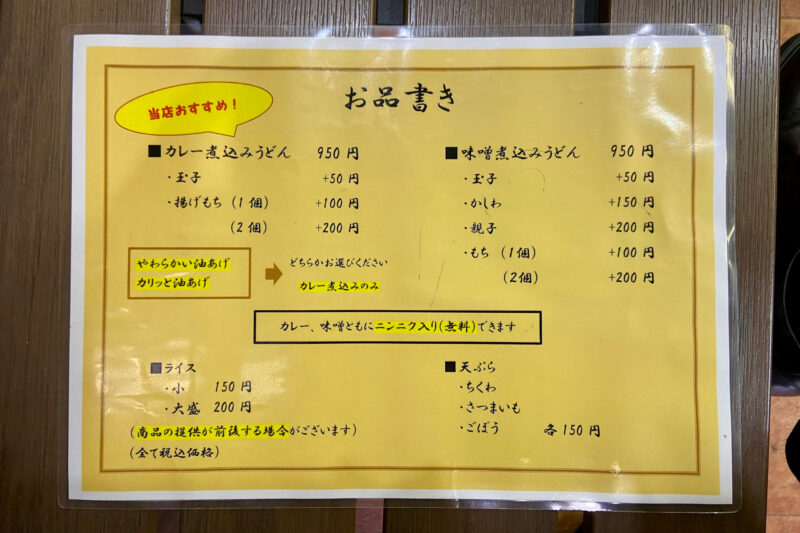 当店おすすめ！
お品書き
■カレー煮込みうどん 950円
・玉子 +50円
・揚げもち（1個） +100円
（2個） +200円
やわらかい油あげ
カリッと油あげ
どちらかお選びください
カレー煮込みのみ
■味噌煮込みうどん 950円
・玉子 +50円
・かしわ +150円
・親子 +200円
・もち（1個） +100円
（2個） +200円
カレー、味噌ともにニンニク入り（無料）できます
■ライス
・小 150円
・大盛 200円
（商品の提供が前後する場合がございます）
（全て税込価格）
■天ぷら
・ちくわ
・さつまいも
・ごぼう 各150円